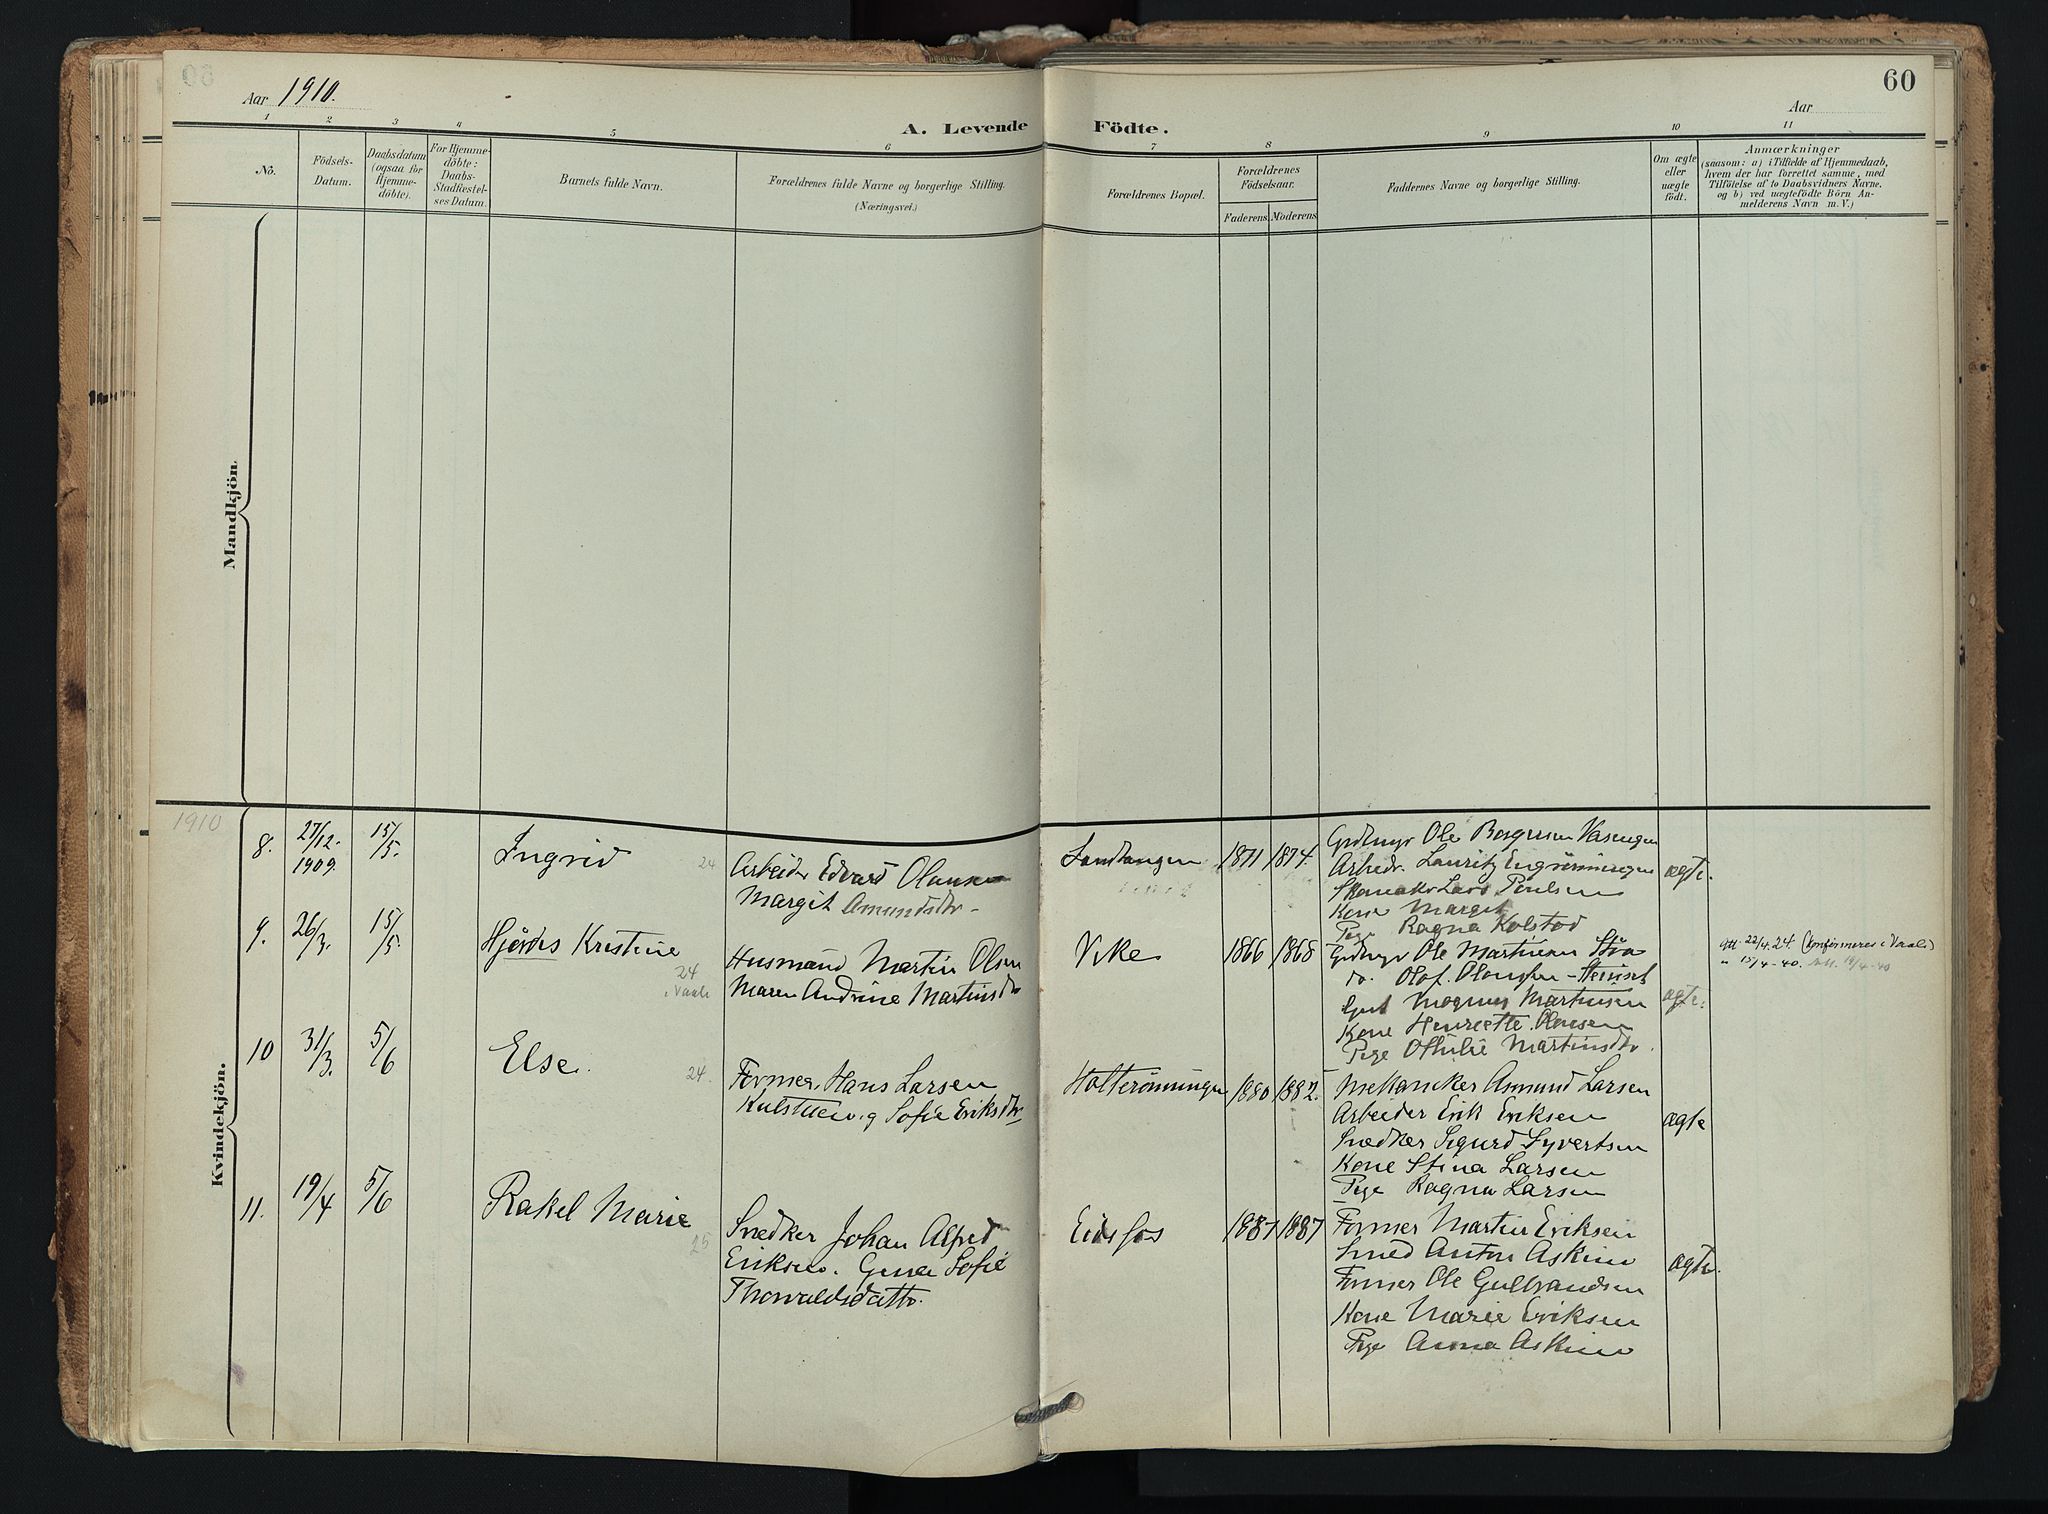 60
Aar 1910.
Aar
A. Levende Födte.
1 2 3 4 5 6 7 8 9 10 11
No.
Födsels-
Datum.
Daabsdatum
(ogsaa for
Hjemme-
döbte).
For Hjemme-
döbte:
Daabs-
Stadfæstel-
ses Datum.
Barnets fulde Navn.
Forældrenes fulde Navne og borgerlige Stilling.
(Næringsvei.)
Forældrenes Bopæl.
Forældrenes
Födselsaar.
Faderens Moderens
Faddernes Navne og borgerlige Stilling.
Om ægte
eller
uægte
födt.
Anmærkninger
(saasom: a) i Tilfælde af Hjemmedaab,
hvem der har forrettet samme, med
Tilföielse af to Daabsvidners Navne.
og b) ved uægtefödte Börn An-
melderens Navn m. V.)
Mandkjön.
Kvindekjön.
1910
8. 27/12. 1909. 15/5. Ingrid 24
Arbeider Edvard Olausen
Margit Amundsdtr
Sandtangen 1871 1874.
Ole Borgersen Vasengen
Arbedr. Lauritz Engrönningen
Skomaker Lars Poulsen
Kone Margit
Pige Ragna Kolstad
ægte.
9. 26/3. 15/5. Hjördis Kristine
24
i Vaale
Husmand Martin Olsen
Maren Andrine Martinsdtr
Vike 1866 1868
Ole Martinsen
do. Olof
Magnus Martinsen
Kone Henriette Olausen
Pige Othilie Martinsdtr.
ægte.
Att. 22/4. 24. (Konfirmeres i Vaale)
" 15/4-40.
10 31/3. 5/6 Else. 24.
Former Hans Larsen
og Sofie Eriksdtr
Holterönningen 1880 1882.
Mekaniker Amund Larsen
Arbeider Erik Eriksen
Snedker Sigurd Syvertsen
Kone Stina Larsen
Pige Ragna Larsen
ægte
11. 19/4 5/6 Rakel Marie
25
Snedker Johan Alfred
Eriksen. Gina Sofie
Thorvaldsdatter.
Eidsfos 1887 1887
Former Martin Eriksen
Smed Anton Askim
Former Ole Gulbrandsen
Kone Marie Eriksen
Pige Anna Askim
ægte.